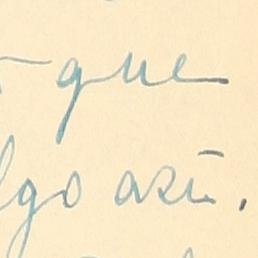 que
lgo así.